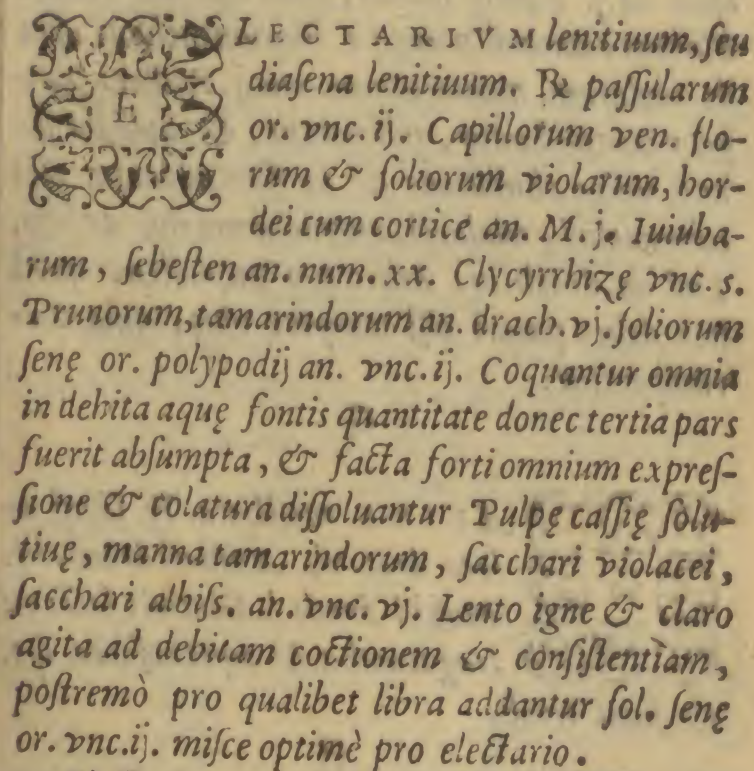 ELECTARIVM lenitiuum, ſeu
diaſena lenitiuum. ℞ paſſularum
or. vnc. ij. Capillorum ven. flo-
rum & foliorum violarum, hor-
dei cum cortice an. M. j. Iuiuba-
rum, ſebeſten an. num. xx. Clycyrrhizę vnc. s.
Prunorum, tamarindorum an. drach. vj. foliorum
ſenę or. polypodij an. vnc. ij. Coquantur omnia
in debita aquę fontis quantitate donec tertia pars
fuerit abſumpta, & facta forti omnium expreſ-
ſione & colatura diſſoluantur Pulpę caſſię ſolu-
tiuę, manna tamarindorum, ſacchari violacei,
ſacchari albiſs. an. vnc. vj. Lento igne & claro
agita ad debitam coctionem & conſiſtentìam,
poſtremò pro qualibet libra addantur fol. ſenę
or. vnc. ij. miſce optimè pro electario.